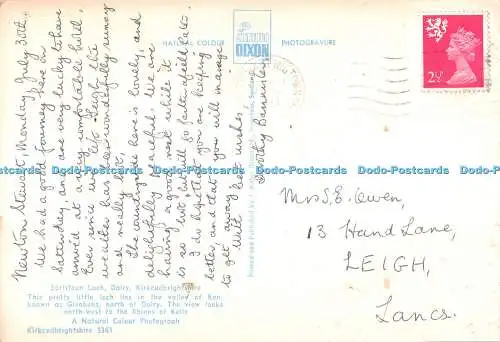 Newton Stewart, Monday July 30th.
We had a good journey here on
Saturday, and are very lucky to have
arrived at a very comfortable hotel.
Ever since we left Leigh the
weather has been wonderfully sunny
and really hot.
The countryside here is lovely and
delightfully peaceful. We are
having a good rest while it
is so hot but will go further afield later.
I do hope that you are keeping
better and that you will manage
to get away.
With best wishes
Dorothy
NATURAL COLOUR
DIXON
PHOTOGRAVURE
2½P
Mrs S. E. Owen,
13 Hand Lane,
LEIGH,
Lancs.
Earlstoun Loch, Dalry, Kirkcudbrightshire
This pretty little loch lies in the valley of Ken
known as Glenkens, north of Dalry. The view looks
north-west to the Rhinns of Kells
A Natural Colour Photograph
Kirkcudbrightshire 5361
Dodo-Postcards Dodo-Postcards Dodo-Postcards Dodo-Postcards Dodo-Postcards Dodo-Postcards
Dodo-Postcards Dodo-Postcards Dodo-Postcards Dodo-Postcards Dodo-Postcards Dodo-Postcards